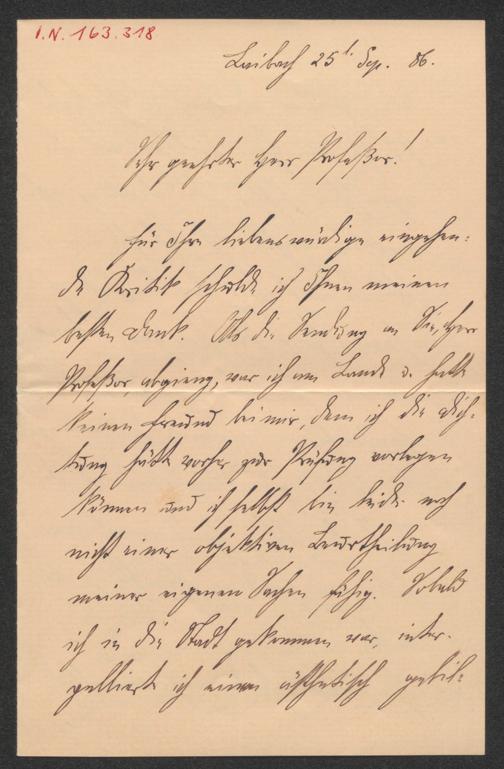 I.N. 163.318
Laibach 25t. Sep. 86.
Sehr geehrter Herr Profeßor!
Für Ihre liebenswürdige eingehen-
de Kritik schulde ich Ihnen meinen
besten Dank. Als die Sendung an Sie, Herr
Profeßor, abgieng, war ich am Lande u. hatte
keinen Freund bei mir, dem ich die Dich-
tung hätte vorher zur Prüfung vorlegen
können und ich selbst bin leider noch
nicht einer objektiven Beurtheilung
meiner eigenen Sachen fähig. Sobald
ich in die Stadt gekommen war, inter-
pellierte ich einen ästhetisch gebil-